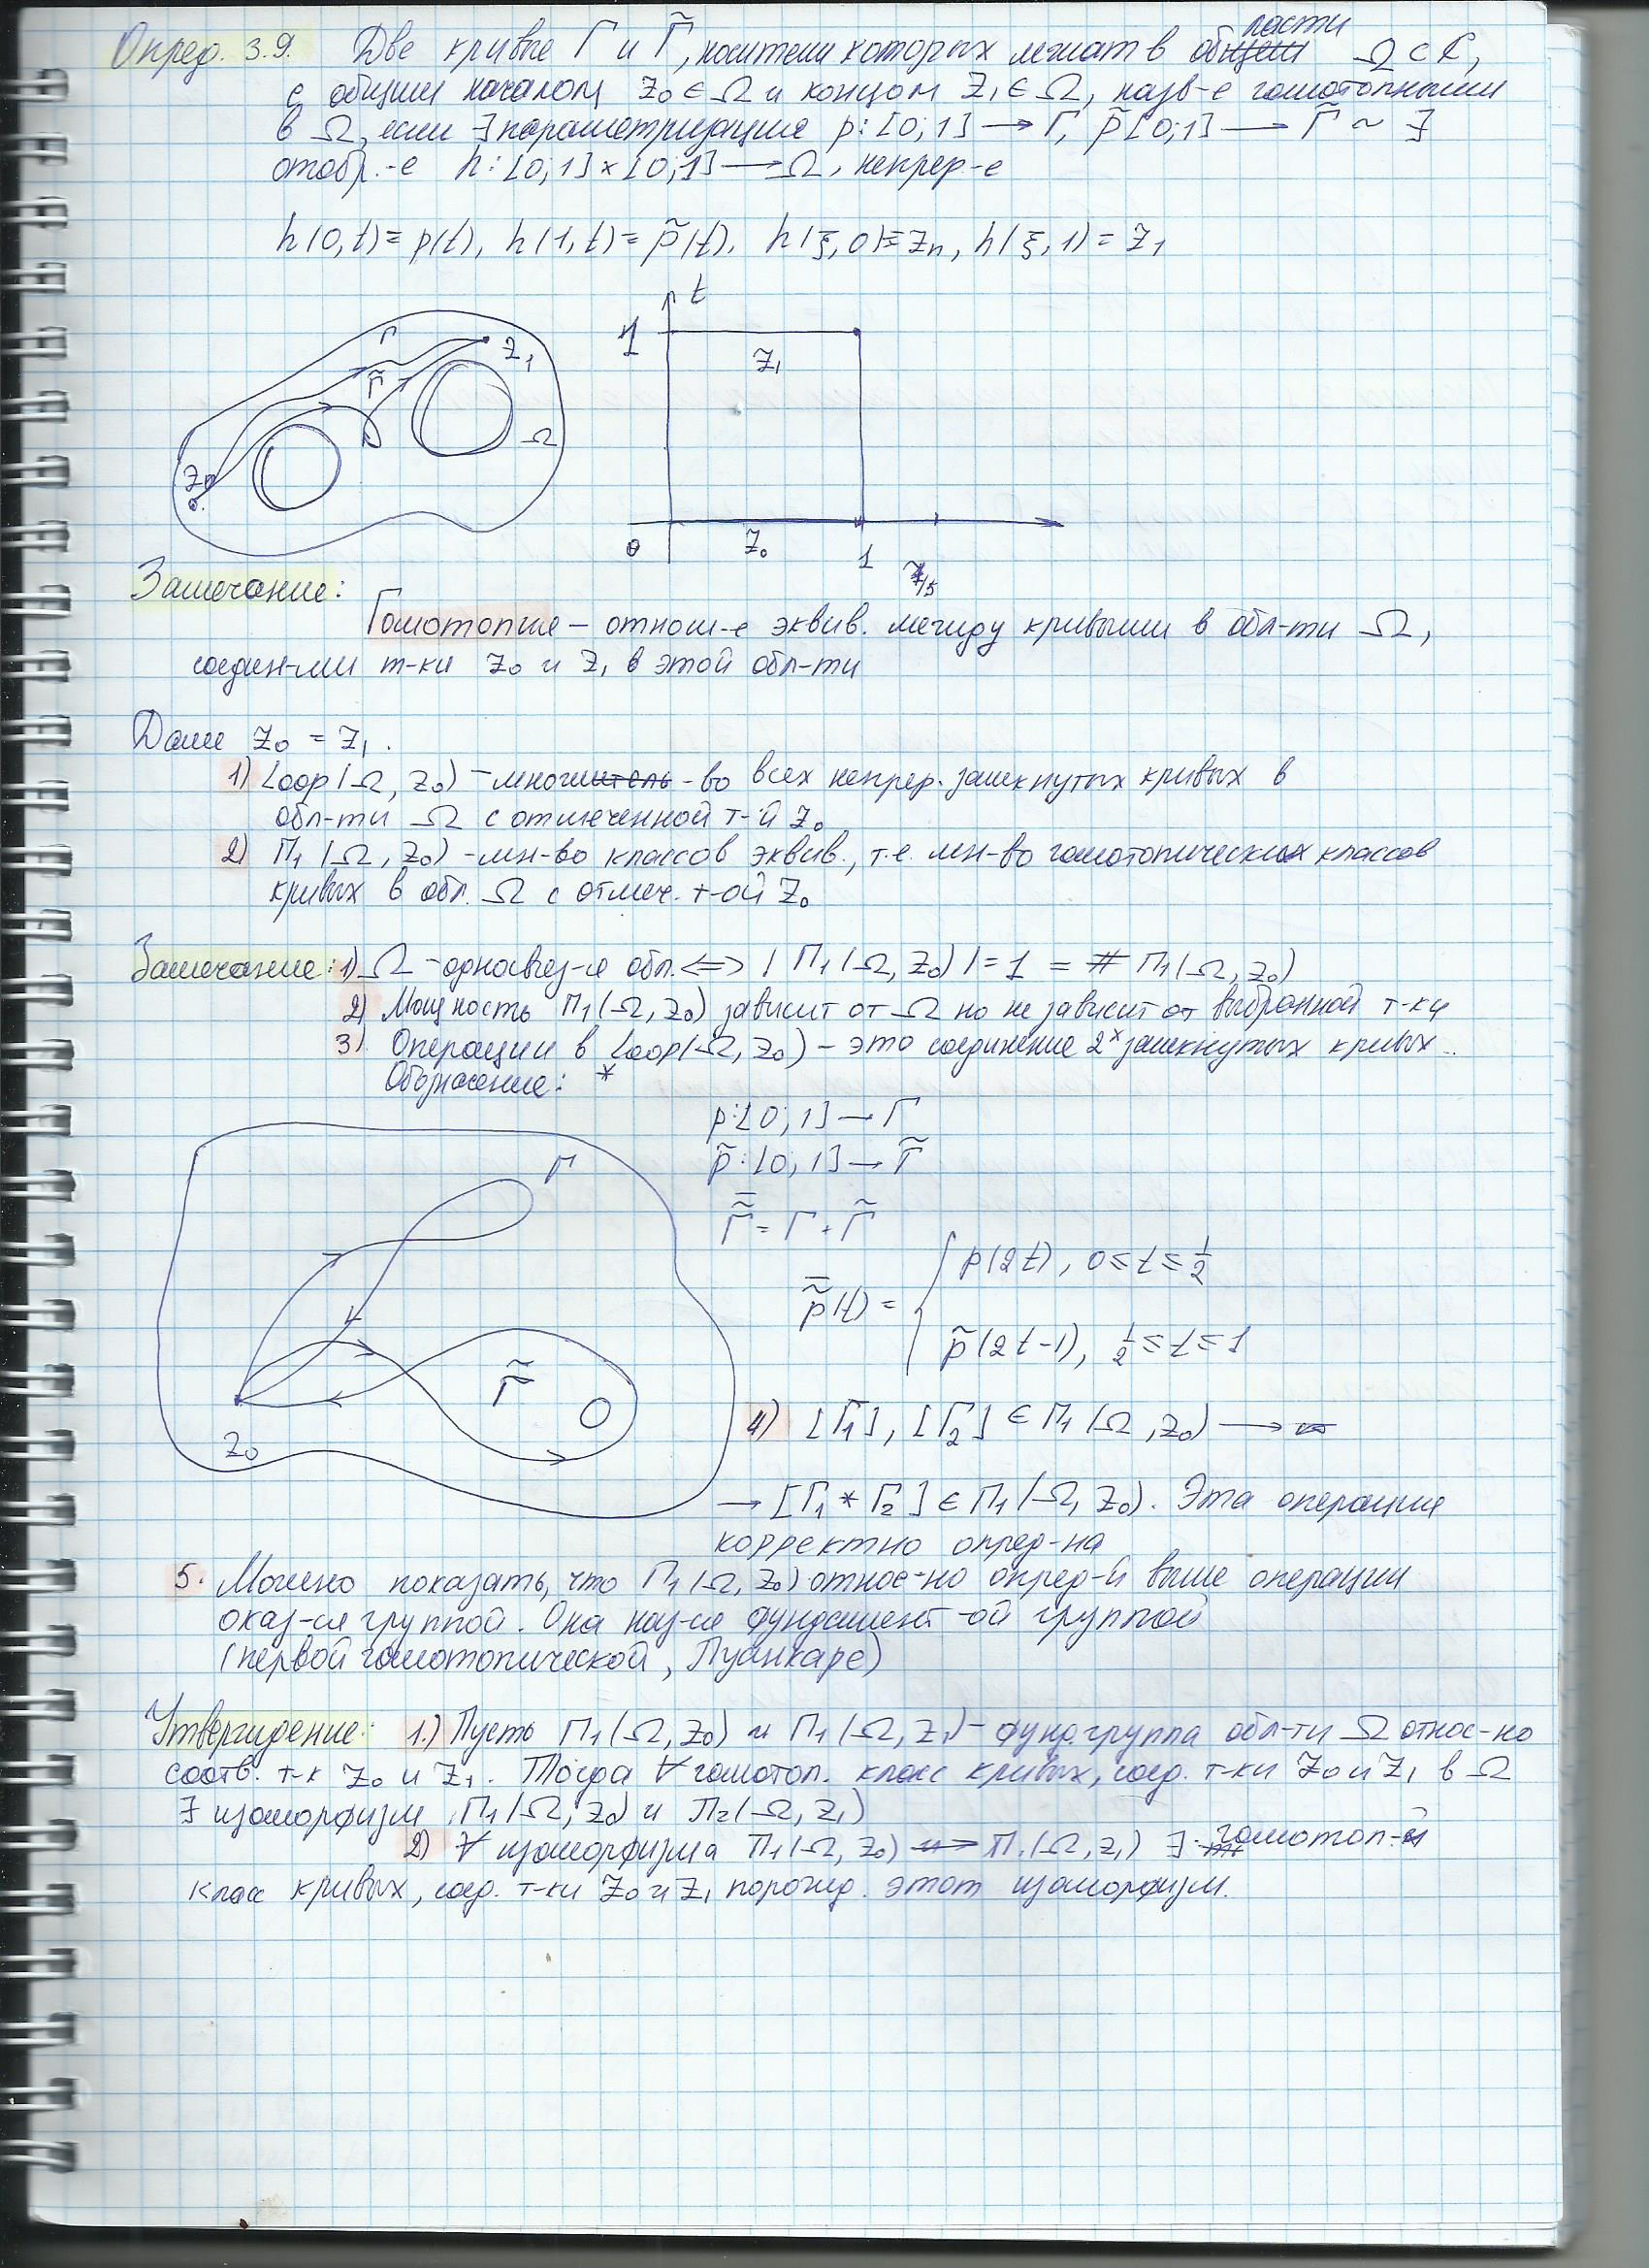 Опред. 3.9. Две кривые Γ и Γ̃, носители которых лежат в области Ω ⊂ ℂ,
с общим началом z₀ ∈ Ω и концом z₁ ∈ Ω, назв-е гомотопными
в Ω, если ∃ параметризация p: [0;1] → Γ, p̃ [0;1] → Γ̃ ~ ∃
отобр.-е h: [0;1] × [0;1] → Ω, непрер-е
h(0,t) = p(t), h(1,t) = p̃(t), h(ξ,0) ≡ zₙ, h(ξ,1) = z₁
t
Γ
Γ̃
z₁
z₀
Ω
1
z₁
0
z₀
1
Замечание:
Гомотопия – отнош-е эквив. между кривыми в обл-ти Ω,
соедин-ми т-ки z₀ и z₁ в этой обл-ти
Далее z₀ = z₁.
1) Loop(Ω, z₀) – множ-во всех непрер. замкнутых кривых в
обл-ти Ω с отмеченной т-й z₀
2) Π₁(Ω, z₀) – мн-во классов эквив., т.е. мн-во гомотопических классов
кривых в обл. Ω с отмеч. т-ой z₀
Замечание: 1) Ω – односвяз-я обл. ⟺ |Π₁(Ω, z₀)| = 1 = # Π₁(Ω, z₀)
2) Мощность Π₁(Ω, z₀) зависит от Ω но не зависит от выбранной т-ки
3) Операции в Loop(Ω, z₀) – это соединение 2ˣ замкнутых кривых..
Обозначение: *
p: [0;1] → Γ
p̃: [0;1] → Γ̃
Γ
Γ̃̄ = Γ · Γ̃
p̃̄(t) = { p(2t), 0 ≤ t ≤ 1/2
p̃(2t-1), 1/2 ≤ t ≤ 1
Γ̃
z₀
4) [Γ₁], [Γ₂] ∈ Π₁(Ω, z₀) →
→ [Γ₁ * Γ₂] ∈ Π₁(Ω, z₀). Эта операция
корректно опред-на
5. Можно показать, что Π₁(Ω, z₀) относ-но опред-й выше операции
оказ-ся группой. Она наз-ся фундамент-ой группой
(первой гомотопической, Пуанкаре)
Утверждение: 1.) Пусть Π₁(Ω, z₀) и Π₁(Ω, z₁) – фунд. группа обл-ти Ω относ-но
соотв. т-к z₀ и z₁. Тогда ∀ гомотоп. класс кривых, соед. т-ки z₀ и z₁ в Ω
∃ изоморфизм Π₁(Ω, z₀) и Π₂(Ω, z₁)
2) ∀ изоморфизма Π₁(Ω, z₀) ↔ Π₁(Ω, z₁) ∃ гомотоп-й
класс кривых, соед. т-ки z₀ и z₁ порожд. этот изоморфизм.